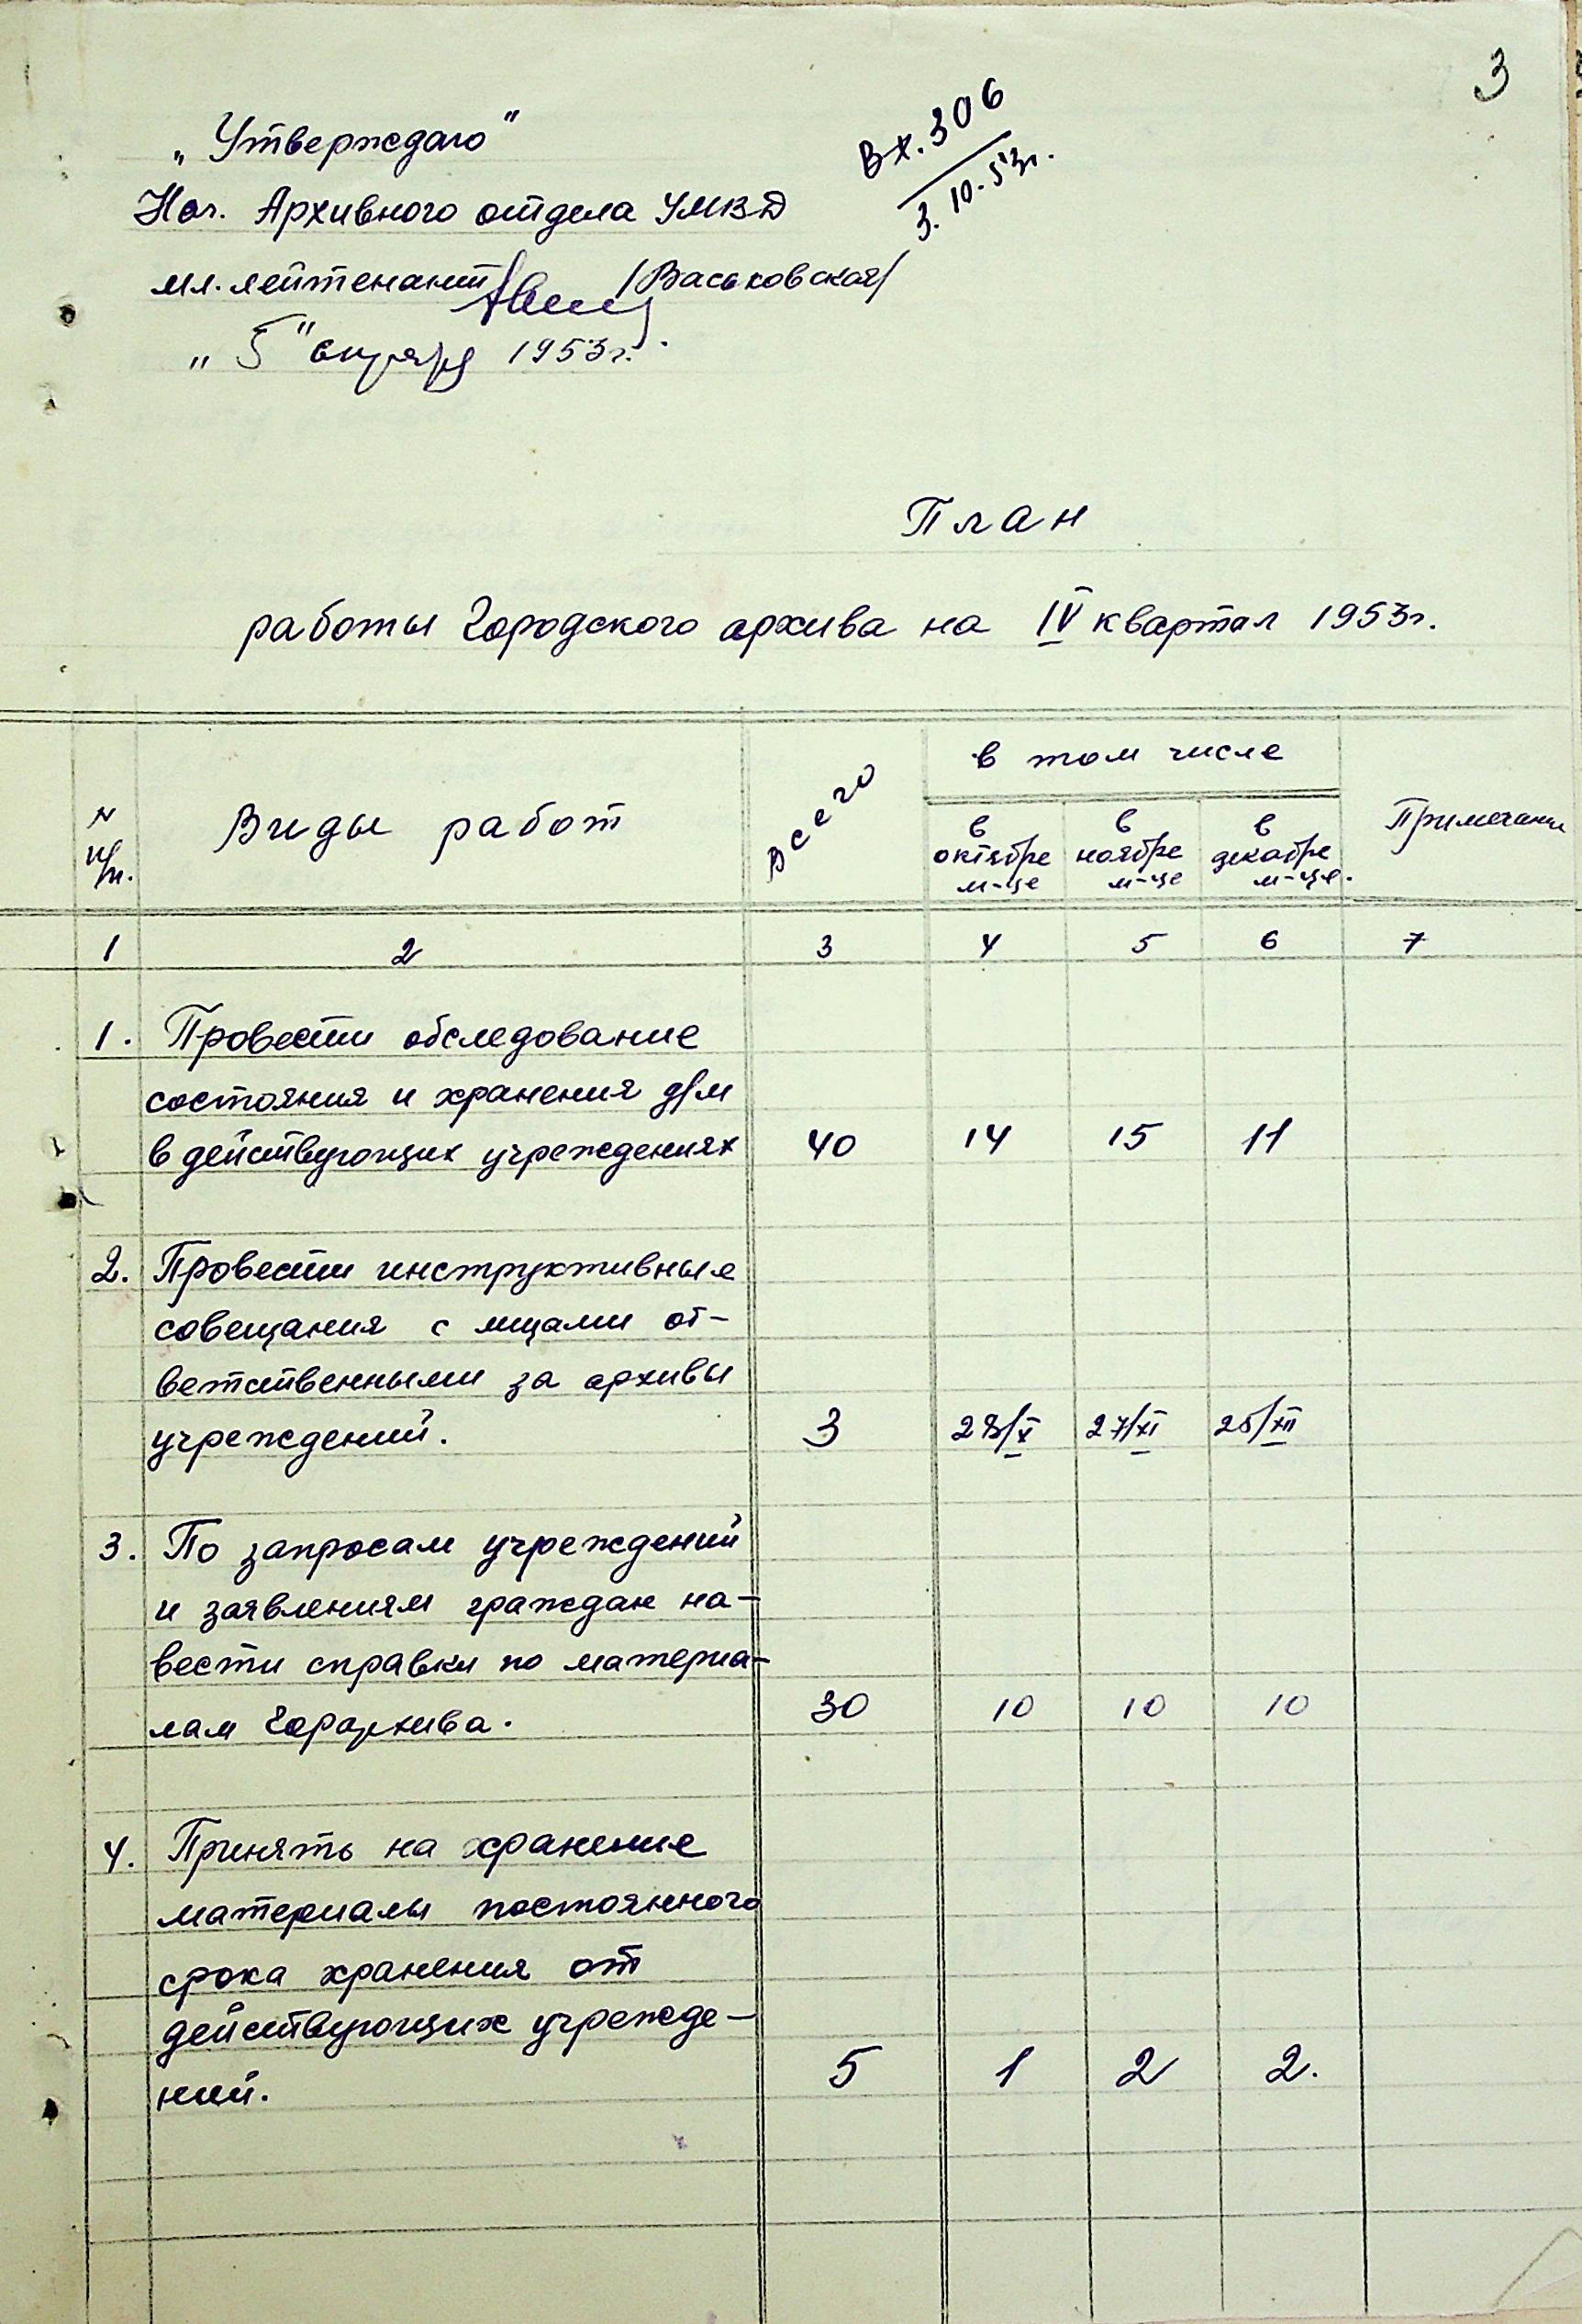 3
Вх. 306
3. 10. 53г.
„Утверждаю"
Нач. Архивного отдела УМВД
мл. лейтенант /Васьковская/
„5" октября 1953г.
План
работы Городского архива на IV квартал 1953г.
N п/п. Виды работ Всего в том числе Примечание
в октябре м-це в ноябре м-це в декабре м-це.
1 2 3 4 5 6 7
1. Провести обследование
состояния и хранения д/м
в действующих учреждениях 40 14 15 11
2. Провести инструктивные
совещания с лицами от-
ветственными за архивы
учреждений. 3 28/X 27/XI 25/XII
3. По запросам учреждений
и заявлениям граждан на-
вести справки по материа-
лам Горархива. 30 10 10 10
4. Принять на хранение
материалы постоянного
срока хранения от
действующих учрежде-
ний. 5 1 2 2.